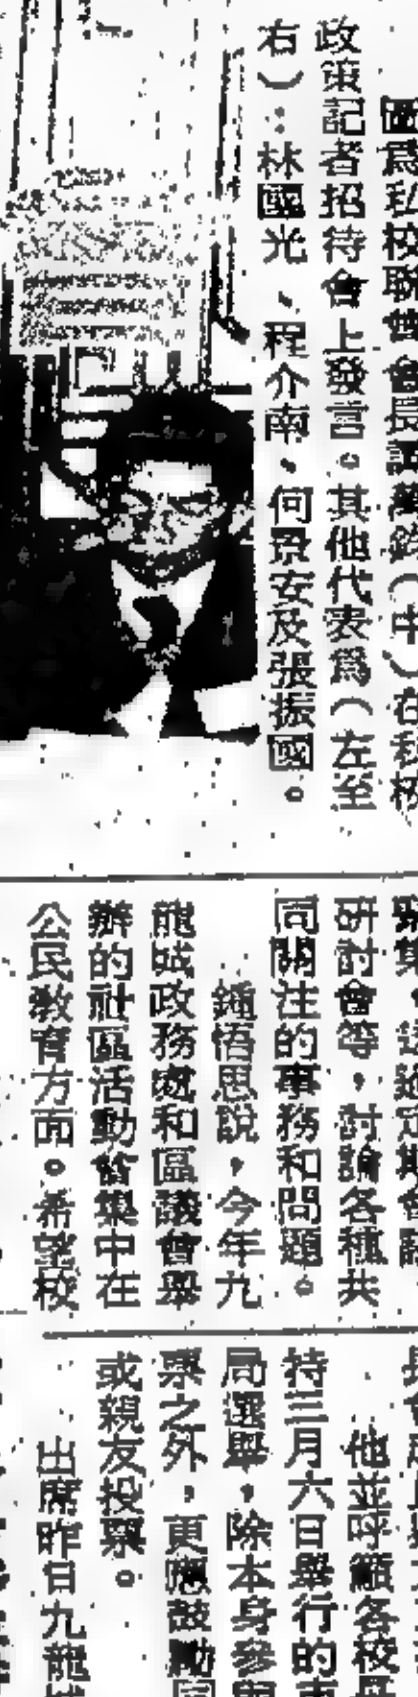 圖為私校聯會會長
（中）在私校
政策記者招待會上發言。其他代表爲（左至
右）：林國光、程介南、何景安及張振國。
研討會等，討論各種共
同關注的事務和問題。
鍾悟思說，今年九
龍城政務處和區議會舉
辦的社區活動會集中在
公民教育方面。希望校
他並呼籲各校長
持三月六日舉行的市
局選舉，除本身參與
票之外，更應鼓勵同
或親友投票。
出席昨日九龍城